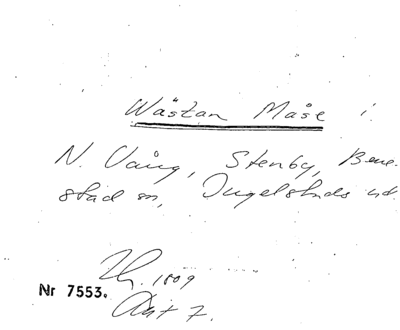 Wästan Måse i
N. Vång, Stenby, Bene-
stad sn, Ingelstads hd.
Th. 1809
Nr 7553.
Akt 7.